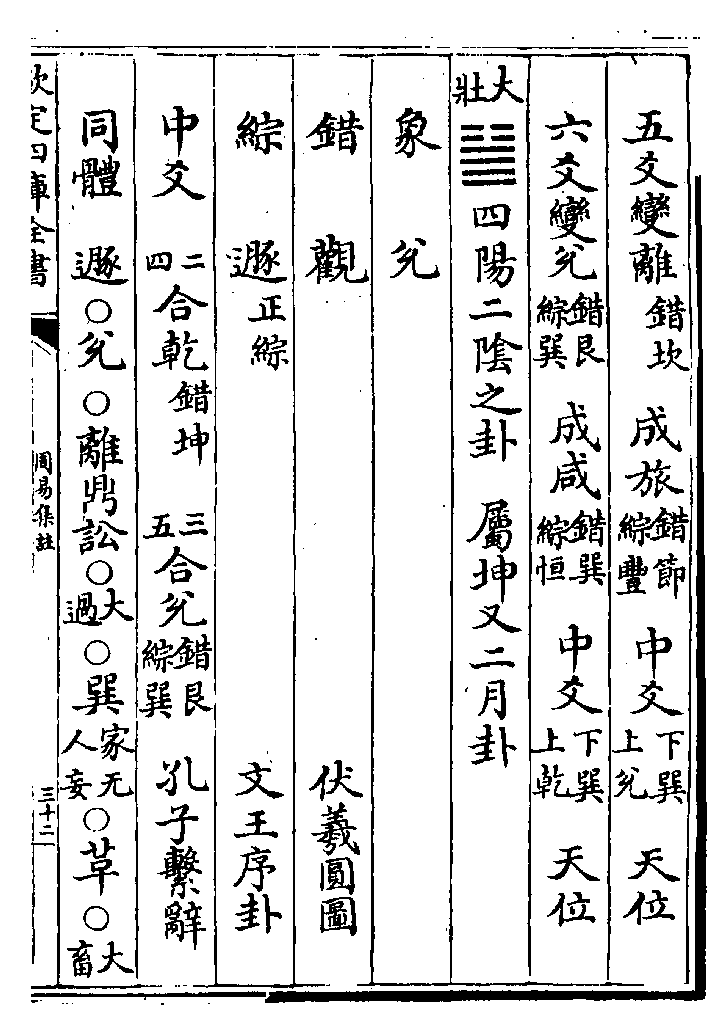 五爻變離錯坎 成旅錯節綜豐 中爻下巽上兊 天位
六爻變兊錯艮綜巽 成咸錯巽綜恒 中爻下巽上乾 天位
大壯 ䷡ 四陽二陰之卦 屬坤又二月卦
象 兊
錯 觀 伏羲圓圖
綜 遯正綜 文王序卦
中爻 二四合乾錯坤 三五合兊錯艮綜巽 孔子繫辭
同體 遯○兊○離鼎訟○大過○巽家人无妄○草○大畜
欽定四庫全書
周易集註
三十二